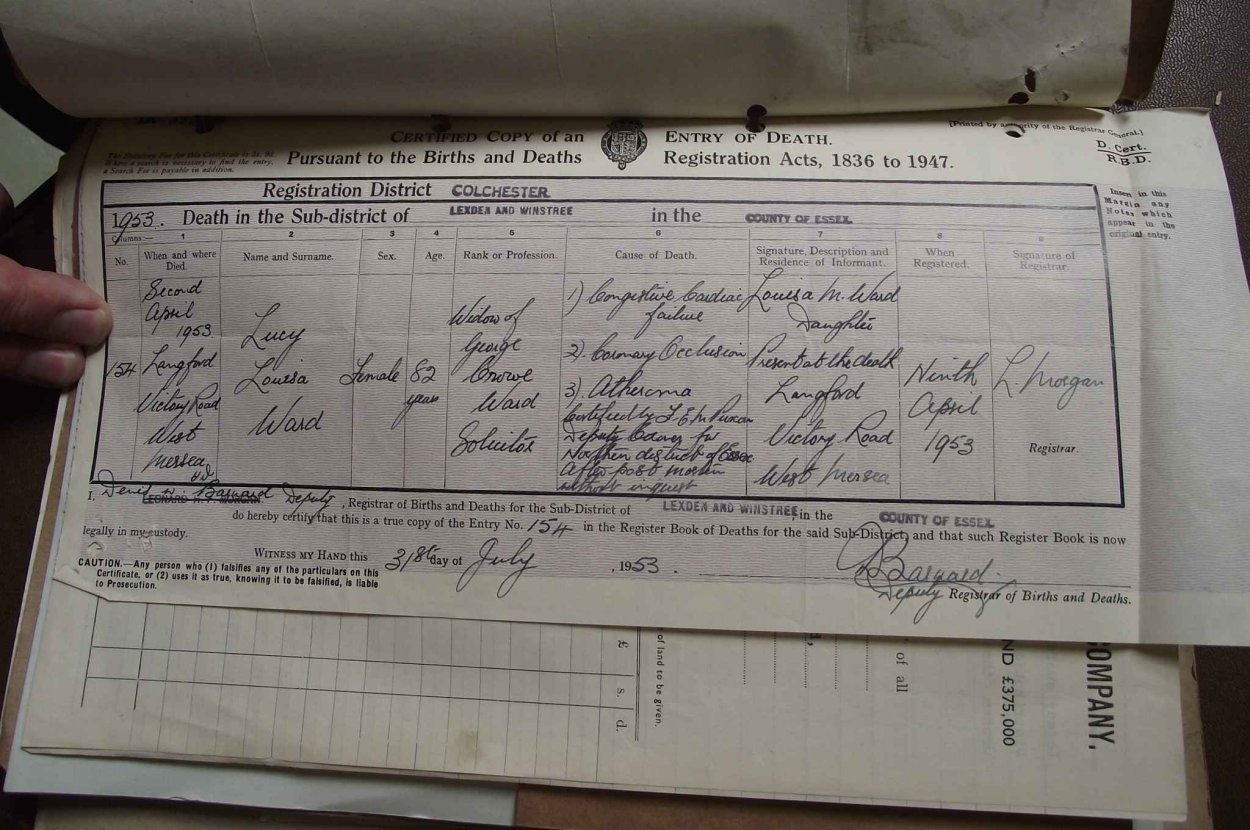 CERTIFIED COPY of an ENTRY OF DEATH.
Pursuant to the Births and Deaths Registration Acts, 1836 to 1947.
The Statutory Fee for this Certificate is 3s. 9d.
Where a search is necessary to find the entry,
a Search Fee is payable in addition.
[Printed by authority of the Registrar General.]
D. Cert.
R.B.D.
Registration District COLCHESTER
1953. Death in the Sub-district of LEXDEN AND WINSTREE in the COUNTY OF ESSEX
Columns:— 1 2 3 4 5 6 7 8 9
No. When and where Died. Name and Surname. Sex. Age. Rank or Profession. Cause of Death. Signature, Description and Residence of Informant. When Registered. Signature of Registrar.
154
Second
April
1953
Langford
Victory Road
West
Mersea
U.D.
Lucy
Louisa
Ward
Female
82
years
Widow of
George
Crowe
Ward
Solicitor
1) Congestive Cardiac
failure
2). Coronary Occlusion
3). Atheroma
Certified by
Deputy Coroner for
Northern district of Essex
After post mortem
without inquest
Louisa M. Ward
Daughter
Present at the death
Langford
Victory Road
West Mersea
Ninth
April
1953
L. Morgan
Registrar.
Insert in this
Margin any
Notes which
appear in the
original entry.
I, Denis W. Barnard Deputy, Registrar of Births and Deaths for the Sub-District of LEXDEN AND WINSTREE, in the COUNTY OF ESSEX
do hereby certify that this is a true copy of the Entry No. 154 in the Register Book of Deaths for the said Sub-District, and that such Register Book is now
legally in my custody.
WITNESS MY HAND this 31st day of July, 1953.
CAUTION.—Any person who (1) falsifies any of the particulars on this
Certificate, or (2) uses it as true, knowing it to be falsified, is liable
to Prosecution.
Barnard.
Deputy Registrar of Births and Deaths.
£ s. d.
of land to be given.
of all
ND £375,000
COMPANY.